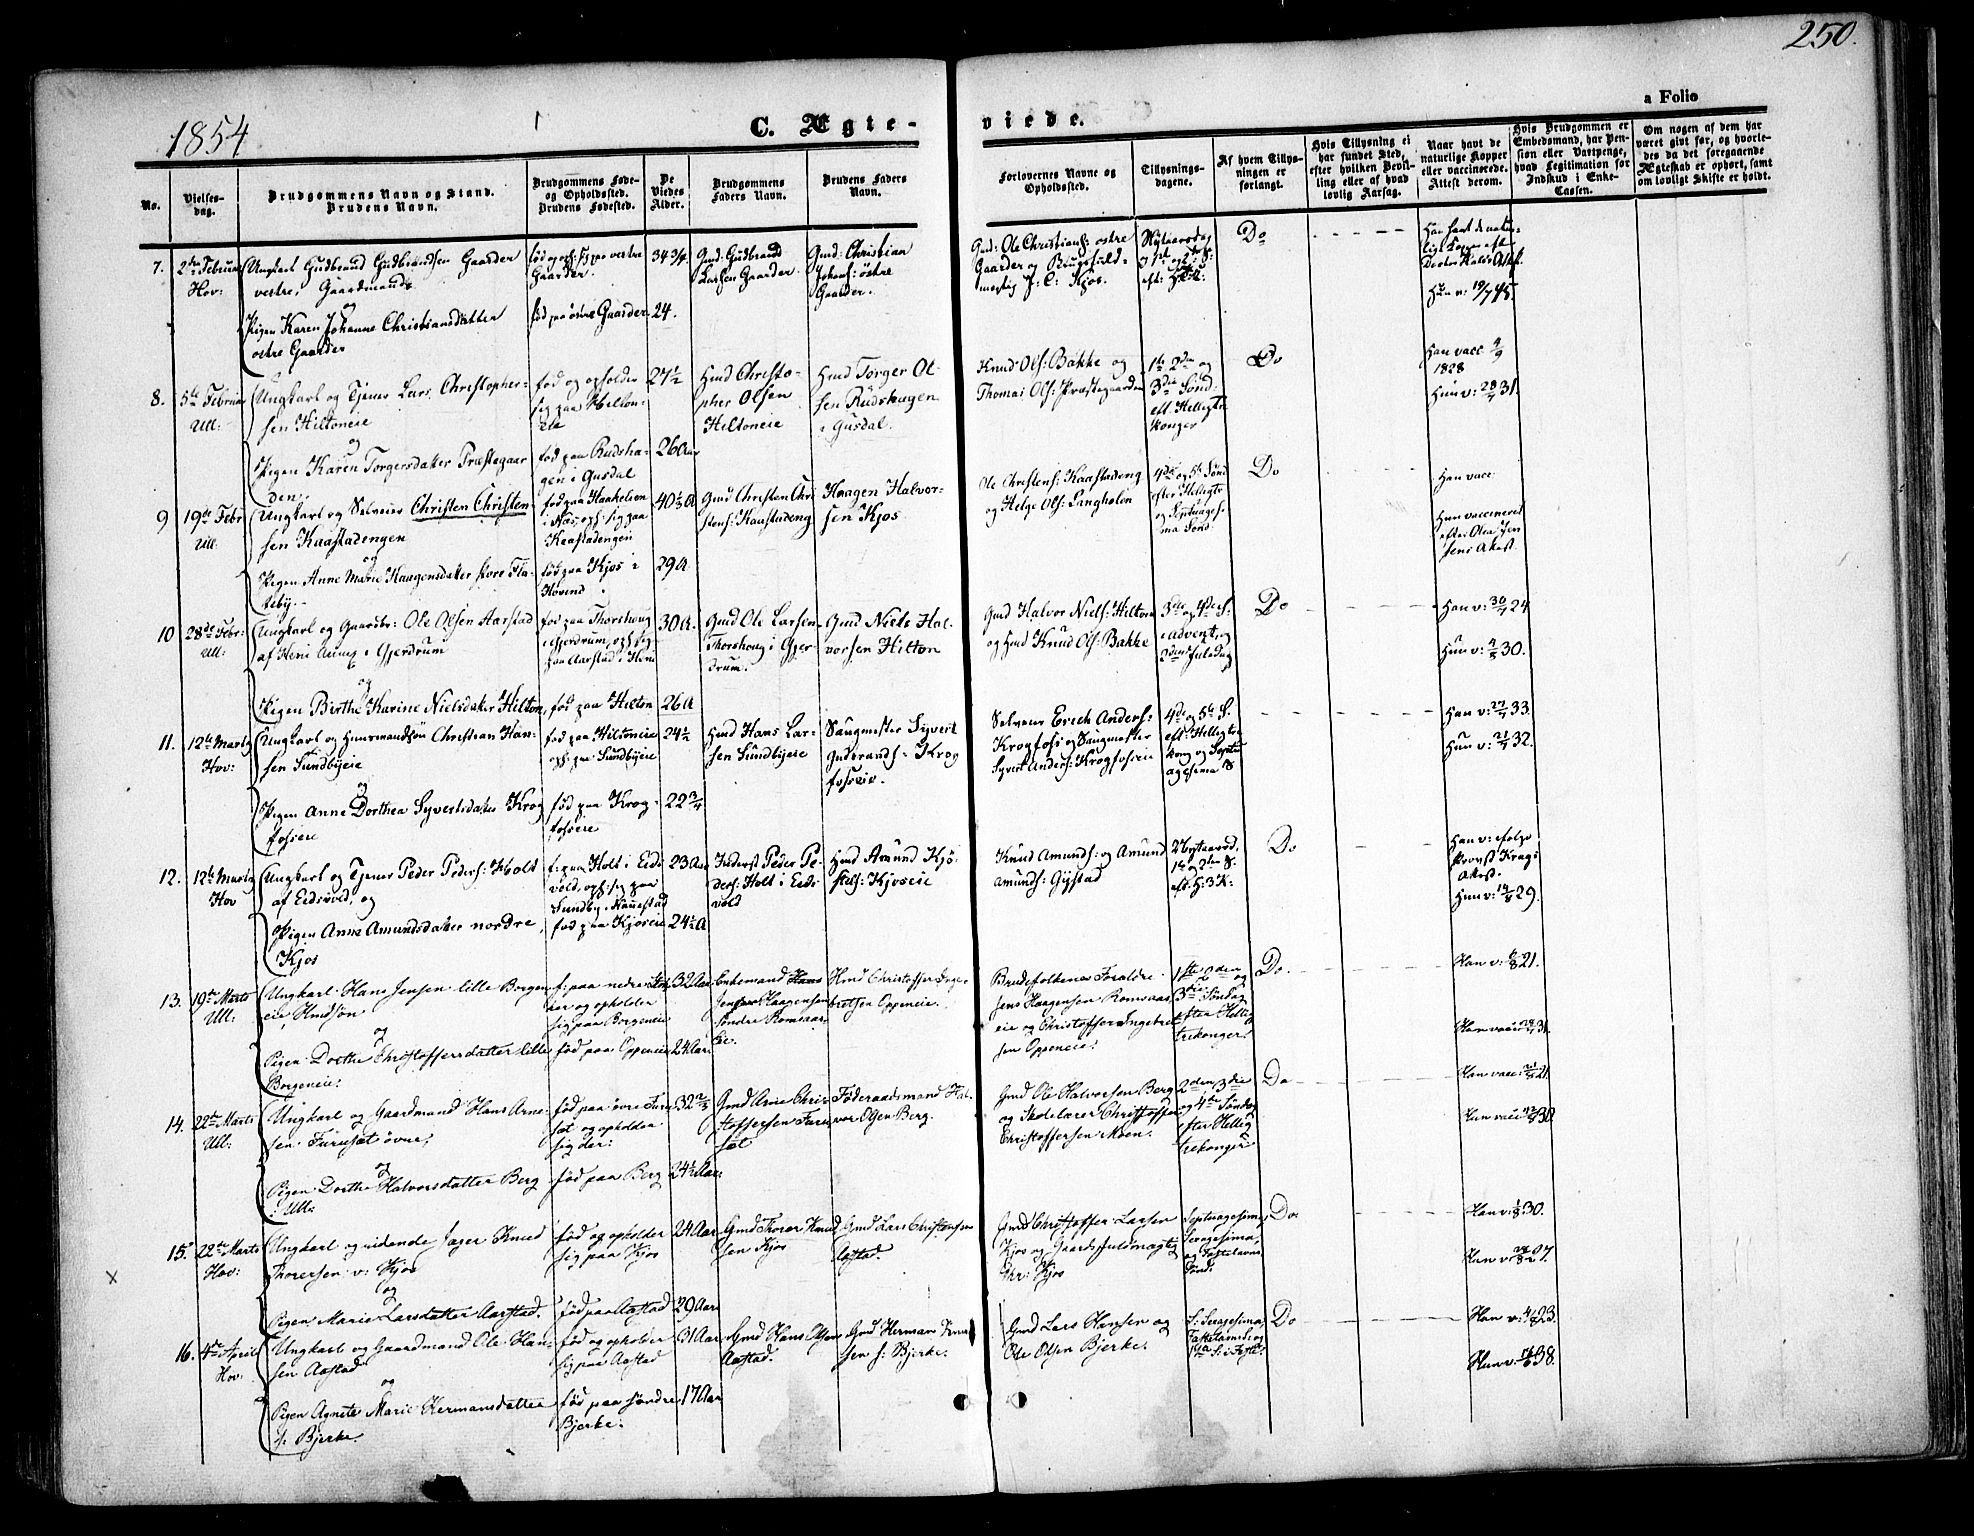 250.
a Folio
1854
C. Ægte-
viede.
No.
Vielses-
dag.
Brudgommens Navn og Stand.
Brudens Navn.
Brudgommens Føde-
og Opholdssted.
Brudens Fødested.
De
Viedes
Alder.
Brudgommens
Faders Navn.
Brudens Faders
Navn.
Forlovernes Navne og
Opholdssted.
Tillysnings-
dagene.
Af hvem Tillys-
ningen er
forlangt.
Hvis Tillysning ei
har fundet Sted,
efter hvilken Bevil-
ling eller af hvad
lovlig Aarsag.
Naar havt de
naturlige Kopper
eller vaccinerede.
Attest derom.
Hvis Brudgommen er
Embedsmand, har Pen-
sion eller Vartpenge,
hvad Legitimation for
Indskud i Enke-
Cassen.
Om nogen af dem har
været gift før, og hvorle-
des da det foregaaende
Ægteskab er ophørt, samt
om lovligt Skifte er holdt.
7.
2den Februar
Hov:
Ungkarl Gudbrand Gudbrandsen Gaarder
vestre, Gaardmands
og
Pigen Karen Johanne Christiansdatter
østre Gaarder
Gaarder.
fød paa østre Gaarder
34 3/4
24.
Gmd: Gudbrand
Larsen Gaarder
Gmd: Christian
Johans: østre
Gaarder.
Gmd: Ole Christians: østre
Gaarder og
Kjos.
Do
Hun v: 19/7 45.
8.
5te Februar
Ull:
Ungkarl og Tjener Lars Christopher-
sen Hiltoneie
og
Pigen Karen Torgersdatter Præstegaar
den.
fød og opholder
sig paa Hilton-
eie
fød paa Rudsha-
gen i Gusdal
27 1/2
26 Aar
Hmd Christo-
pher Olsen
Hiltoneie
Hmd Torger Ol-
sen Rudshagen
i Gusdal.
Knud Ols: Bakke og
Thomas Ols: Præstegaarden
1ste 2den og
3die Sønd:
eft. Helligtre
konger
Do
Han vacc 4/9
1828
Hun v: 28/7 31.
9
19de Febr
Ull.
Ungkarl og Selveier Christen Christen-
sen Kaastadengen
og
Pigen Anne Marie Haagensdatter store Fla-
deby.
fød paa Haakelien
i Næs, oph: sig paa
Kaastadengen
fød paa Kjos i
Hovend
40 1/2 A
29 A
Gmd Christen Chri
stens: Kaastadeng
Haagen Halvor-
sen Kjos
Ole Christens: Kaastadeng
og Helge Ols: Langholen
4de og 5te Sønd
efter Helligtr
og Septuages-
ima Sønd.
Do
Han vacc
Hun vaccineret
10
28de Febr:
Ull:
Ungkarl og Gaardbr: Ole Olsen Aarstad
af Heni Annex i Gjerdrum
og
Pigen Birthe Karine Nielsdatter Hilton,
fød paa Thorshoug
i Gjerdrum, oph: sig
paa Aarstad i Heni
fød paa Hilton
30 A.
26 A
Gmd Ole Larsen
Thorshoug i Gjer-
drum.
Gmd Niels Hal-
vorsen Hilton
Gmd Halvor Niels: Hilton
og Hmd Knud Ols: Bakke
3die og 4de S:
i Advent, og
2den Juledag
Do
Han v: 30/7 24
Hun v: 4/5 30.
11.
12te Marts
Hov:
Ungkarl og Huusmandssøn Christian Han-
sen Sundbyeie
og
Pigen Anne Dorthea Syvertsdatter Krog
fosseie
fød paa Hiltoneie
oph: paa Sundbyeie
fød paa Krog-
fosseie
24 1/2
22 3/4
Hmd Hans Lar-
sen Sundbyeie
Saugmester Syvert
Gulbrands: Krog
fosseie.
Selveier Erich Anders:
Krogfoss og Saugmester
Syvert Anders: Krogfosseie
4de og 5te S:
eft Helligtre
kong og Septu
agesima S
Han v: 27/7 33.
Hun v: 21/7 32.
12.
12te Marts
Hov
Ungkarl og Tjener Peder Peders: Holt
af Eidsvold, og
Pigen Anne Amundsdatter nordre
Kjos
f: paa Holt i Eids
vold, oph: sig paa
Sundby i Nannestad
fød paa Kjoseie
23 Aar
24 1/2 A
Inderst Peder Pe-
ders: Holt i Eids
vold
Hmd Amund Kjø-
stels: Kjoseie
Knud Amunds: og Amund
Amunds: Gystad
2 Nytaarsd.
1te og 2den S.
eft. H: 3 K:
Do
Han v: ifølge
Provst Krags
Attest.
Hun v: 14/8 29.
13.
19de Marts
Ull:
Ungkarl Hans Jensen lille Borgen
eie, Hmdsøn
og
Pigen Dorthe Christoffersdatter lille
Borgeneie:
der og opholder
sig paa Borgeneie
fød paa Oppeneie
32 Aar
24 Aar.
Enkemand Hans
Jens Haagensen
søndre Romsaas
eie.
Hmd Christoffer Inge-
bretsen Oppeneie.
Brudefolkenes Forældre
Jens Haagensen Romsaas
eie og Christoffer Ingebret
sen Oppeneie:
1ste 2den og
3die Søndag
efter Hellig
trekonger.
Do.
Han v: 6/8 21.
14.
22de Marts
Ull:
Ungkarl og Gaardmand Hans Arne-
sen Furuset øvre,
og
Pigen Dorthe Halvorsdatter Berg
Ull:
fød paa øvre Furu
set og opholder
sig der:
fød paa Berg
32 2/3
24 1/2 Aar:
Gmd Arne Chri-
stoffersen Furu
set
Føderaadsmand Hal-
vor Olsen Berg.
Gmd Ole Halvorsen Berg
og Skolelærer Christoffer
Christoffersen Moen.
2den, 3die
og 4de Søndag
efter Hellig
trekonger
Do
15.
22de Marts
Hov:
Ungkarl og ridende Jæger Knud
Thoresen v: Kjos
og
Pigen Marie Larsdatter Aarstad.
fød og opholder
sig paa Kjos
fød paa Aastad
24 Aar
29 Aar
Gmd Thorer Knud
sen Kjos
Gmd Lars Christensen
Aastad.
Gmd Christoffer Larsen
Kjos og Gaardsfuldmægtig
Chr: Kjos
Septuagesima,
Sexagesima,
og Fastelavns
Sønd:
Do.
Han v: 1/8 30.
16.
4de April
Hov:
Ungkarl og Gaardmand Ole Han-
sen Aastad
og
Pigen Agnete Marie Hermansdatter
s. Bjerke.
fød og opholder
sig paa Aastad
fød paa søndre
Bjerke.
31 Aar
17 Aar
Gmd Hans Olsen
Aastad.
Gmd Herman Knud
sen s: Bjerke.
Gmd Lars Hansen og
Ole Olsen Bjerke.
S: Sexagesima,
Do